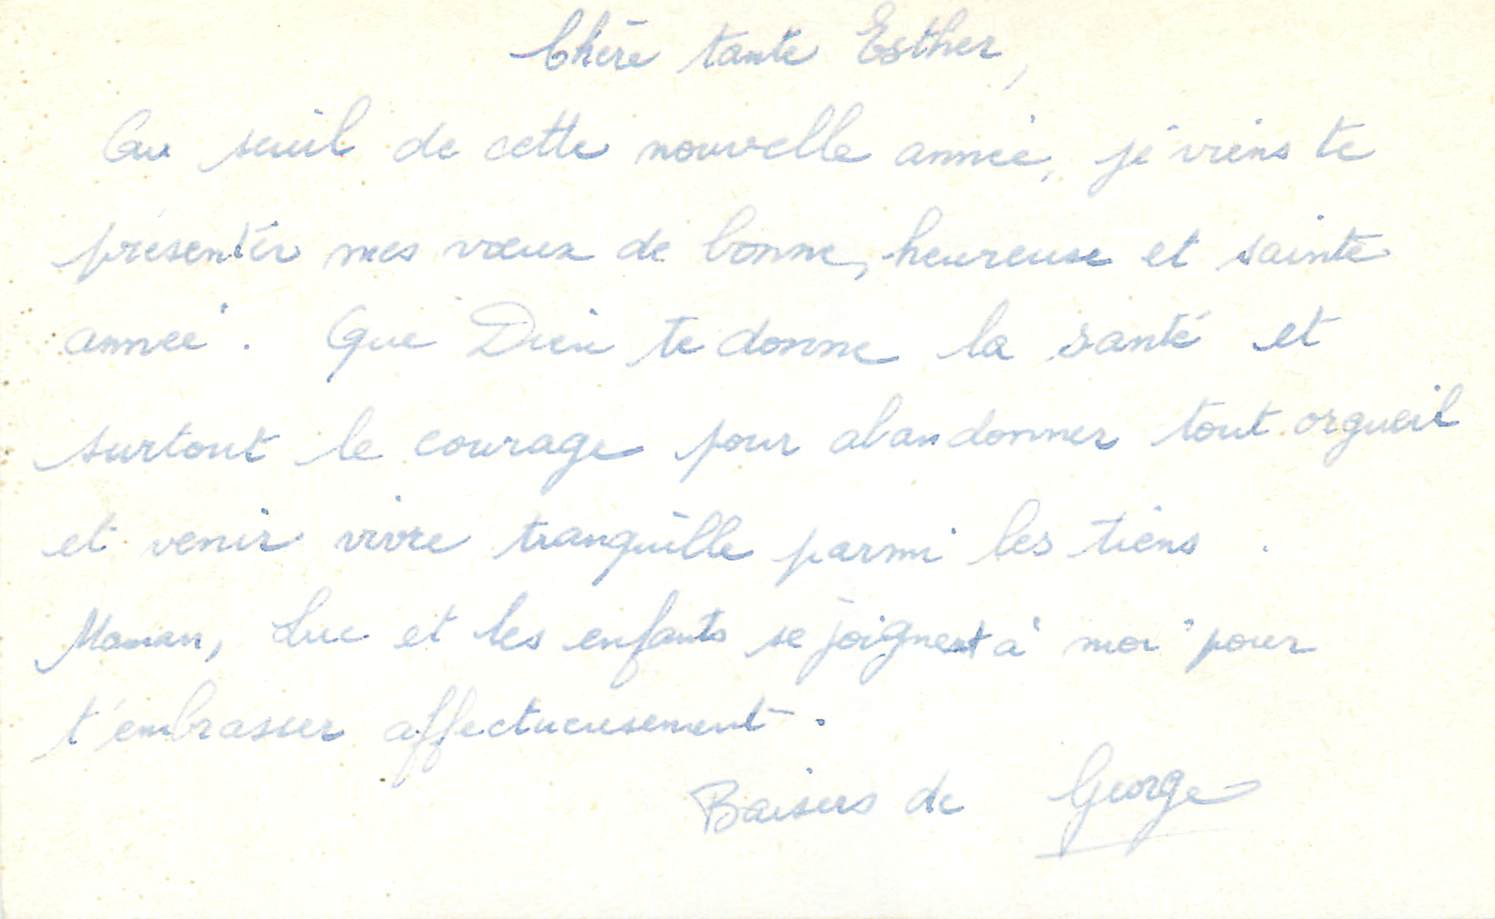 Chère tante Esther,
Au seuil de cette nouvelle année, je viens te
présenter mes vœux de bonne, heureuse et sainte
année. Que Dieu te donne la santé et
surtout le courage pour abandonner tout orgueil
et venir vivre tranquille parmi les tiens.
Maman, Luc et les enfants se joignent à moi pour
t'embrasser affectueusement.
Baisers de George